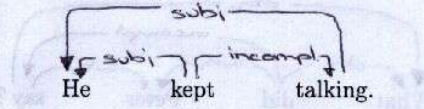 subj
subj incompl.
He kept talking.